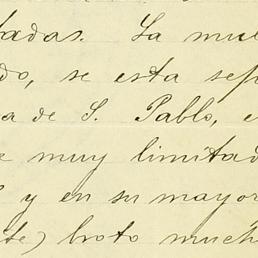 tadas. La mue
do, se esta sep
a de S. Pablo, e
e muy limitad
y en su mayor
te) broto much